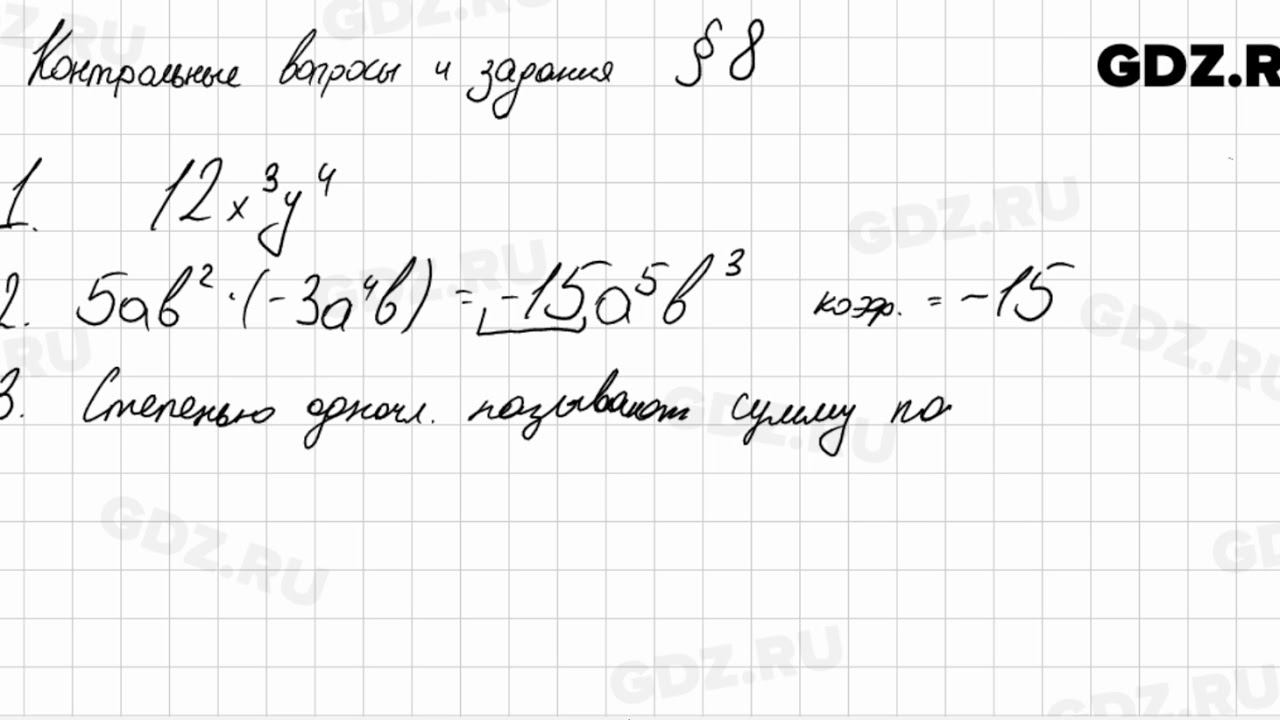 Контрольные вопросы и задания § 8
GDZ.R
1. 12x³y⁴
2. 5ab² · (-3a⁴b) = -15a⁵b³ коэф. = -15
3. Степенью одночл. называют сумму по
GDZ.RU
GDZ.RU
GDZ.RU
GDZ.RU
GDZ.RU
GDZ.RU